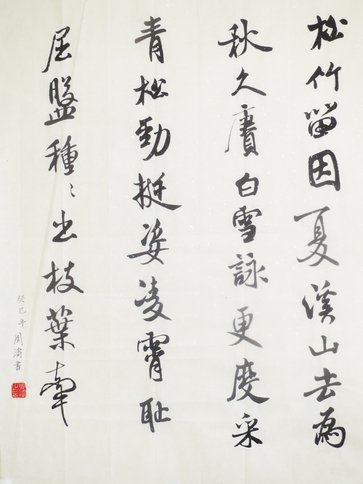 松竹留因夏溪山去為
秋久賡白雪詠更度采
青松勁挺姿凌霄恥
屈盤種〻出枝葉牽
癸巳年周濤書